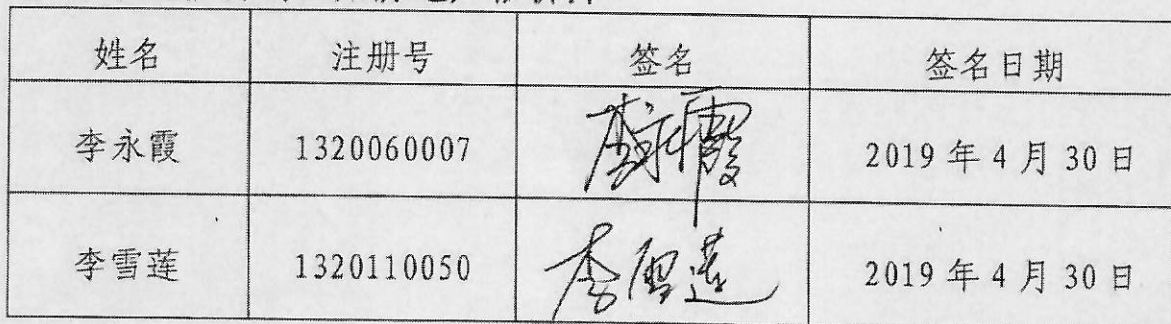 姓名 注册号 签名 签名日期
李永霞 1320060007 李永霞 2019年4月30日
李雪莲 1320110050 李雪莲 2019年4月30日